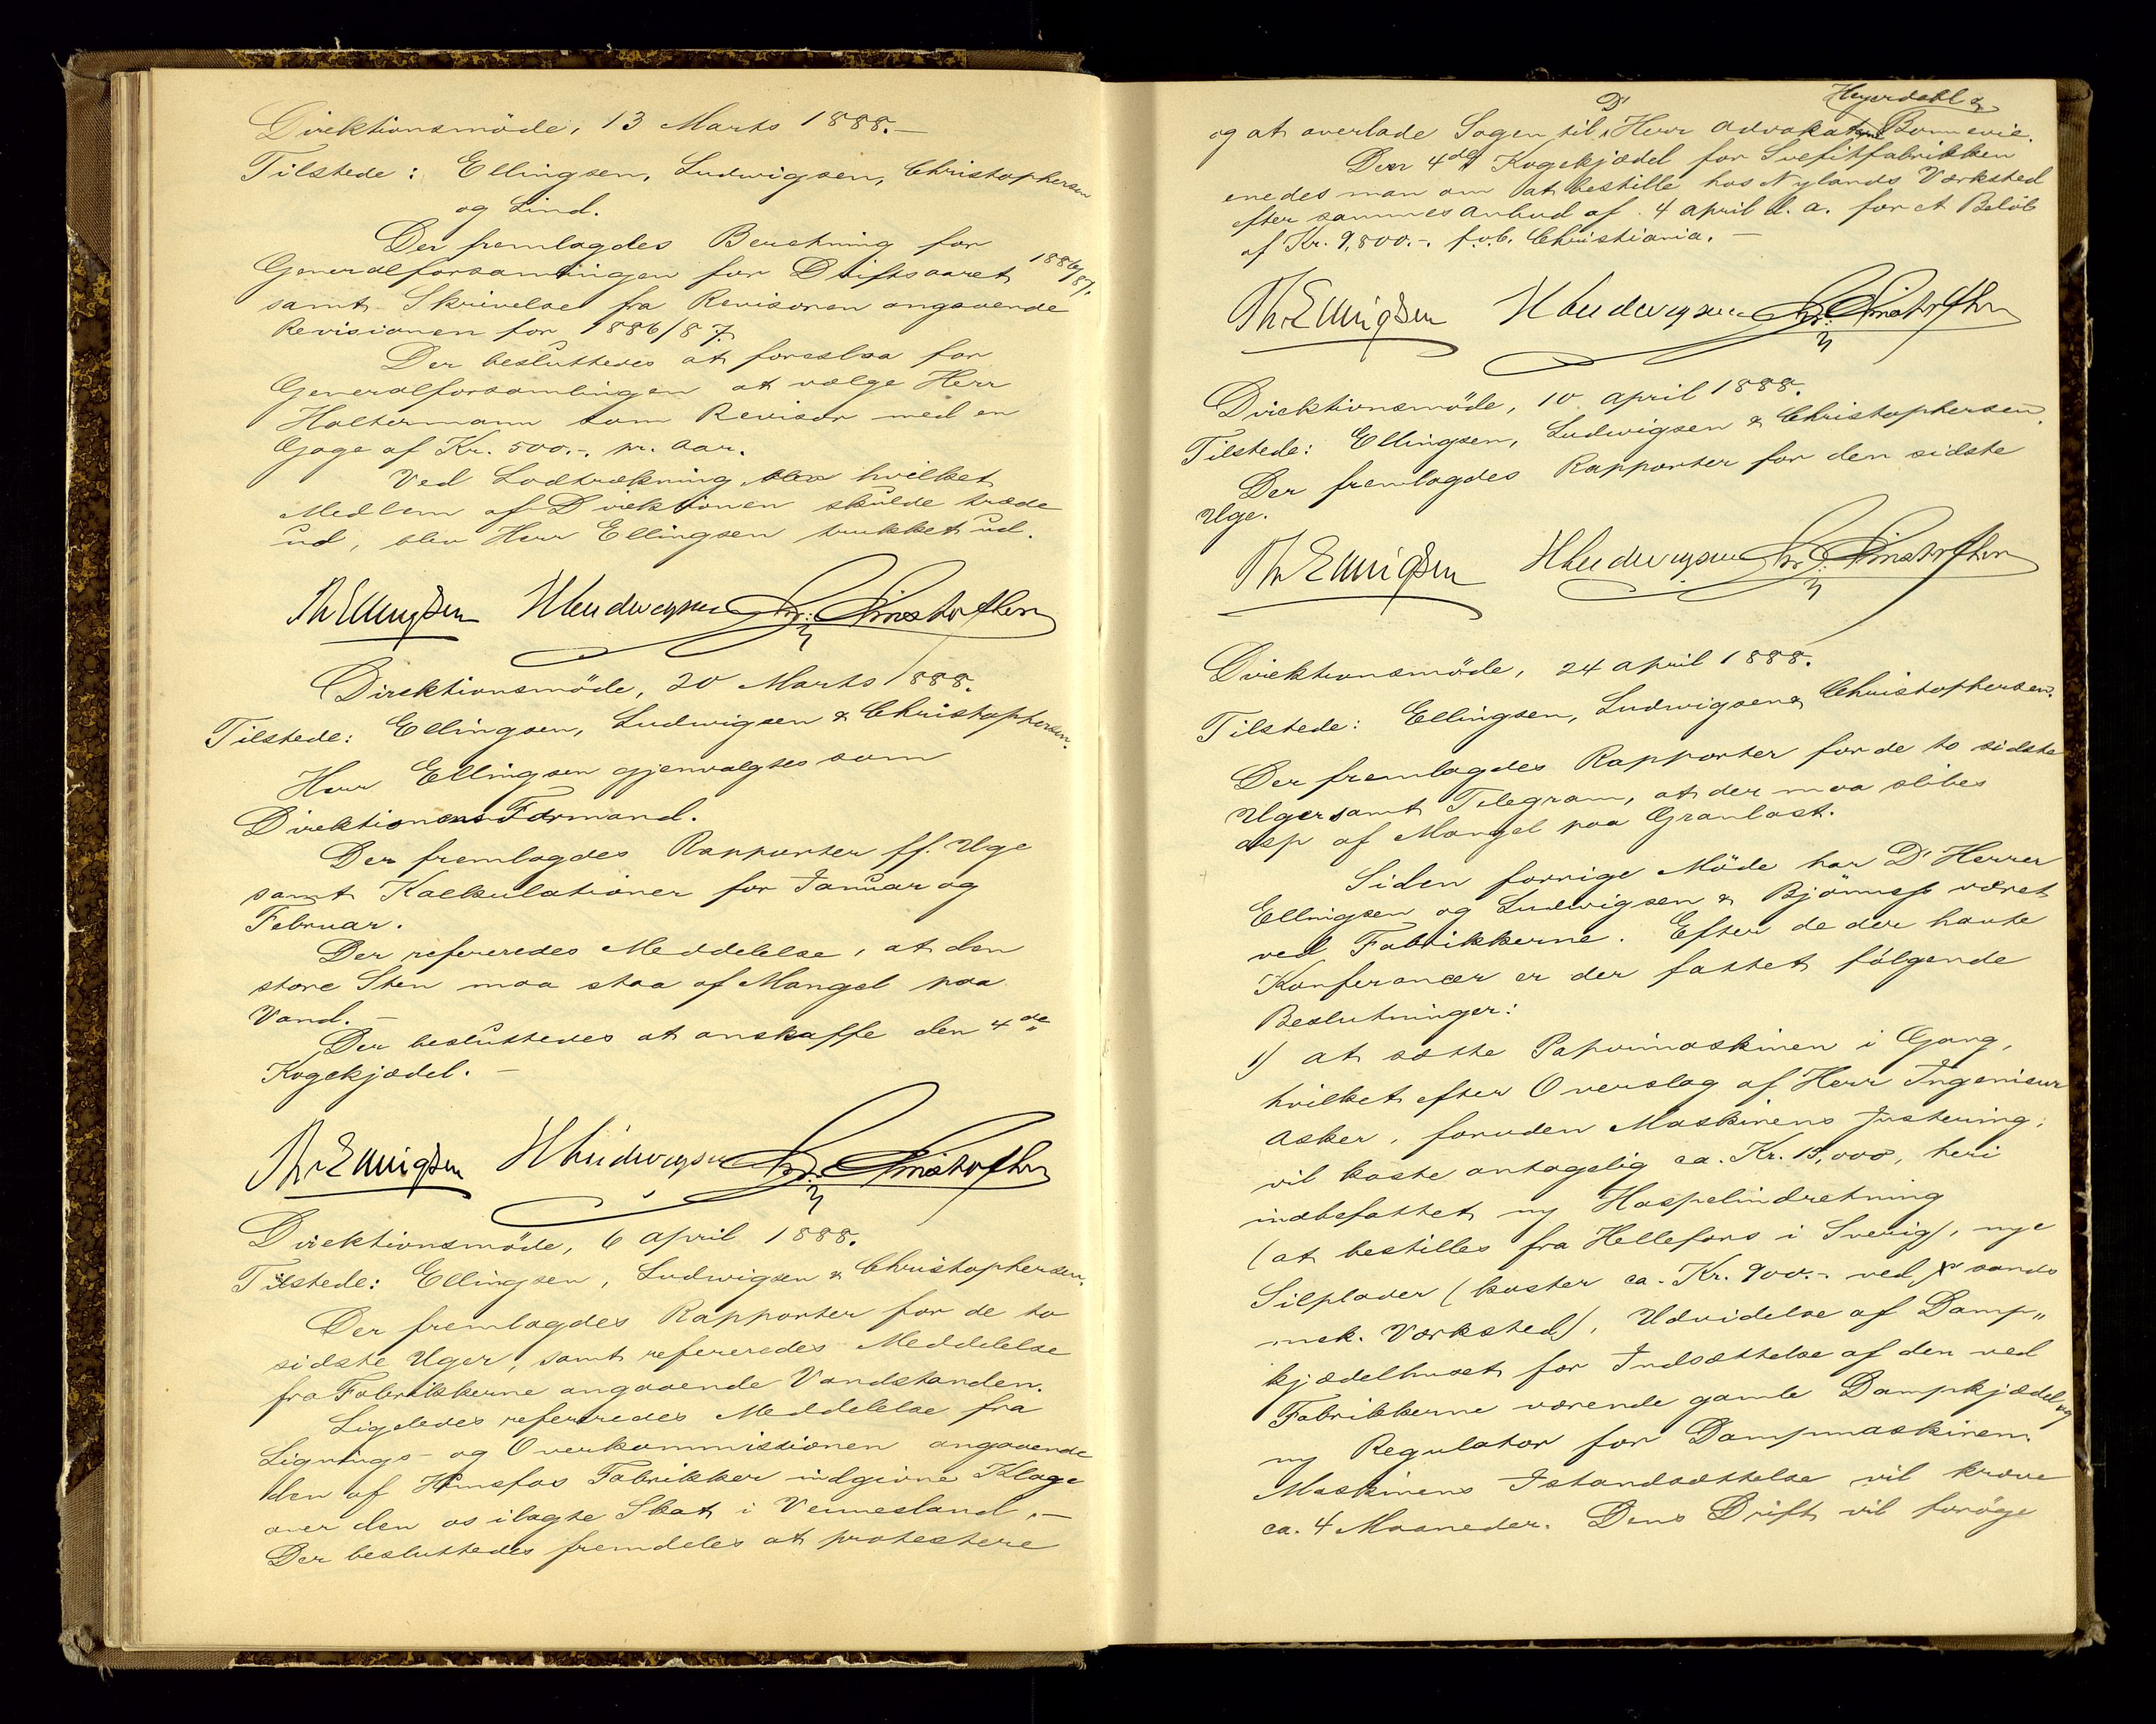 Direktionsmöde, 13 Marts 1888.–
Tilstede: Ellingsen, Ludwigsen, Christophersen
og Lind.
Der fremlagdes Beretning for
Generalforsamlingen for Driftsaaret 1886/87.
samt Skrivelse fra Revisoren angaaende
Revisionen for 1886/87.
Der besluttedes at foreslaa for
Generalforsamlingen at vælge Herr
Holtermann som Revisor med en
Gage af Kr. 500.-. pr. Aar.
Ved Lodtrækning, hvilket
Medlem af Direktionen skulde træde
ud, blev Herr Ellingsen trukket ud.
Th Ellingsen HLudwigsen Chr: Christophersen
Direktionsmöde, 20 Marts 1888.
Tilstede: Ellingsen, Ludwigsen & Christophersen.
Herr Ellingsen gjenvalgtes som
Direktionens Formand.
Der fremlagdes Rapporter ff. Uge
samt Kalkulationer for Januar og
Februar.
Der refereredes Meddelelse, at den
store Sten maa staa af Mangel paa
Vand. –
Der besluttedes at anskaffe den 4de
Kogekjædel. –
Th. Ellingsen HLudwigsen Chr: Christophersen
Direktionsmöde, 6 April 1888.
Tilstede: Ellingsen, Ludwigsen & Christophersen.
Der fremlagdes Rapporter for de to
sidste Uger, samt refereredes Meddelelse
fra Fabrikkerne angaaende Vandstanden.
Ligeledes refereredes Meddelelse fra
Lignings- og Overkommissionen angaaende
den af Hunsfos Fabrikker indgivne Klage
over den os ilagte Skat i Vennesland.–
Der besluttedes fremdeles at protestere
og at overlade Sagen til D' Herr Advokat Heyerdahl & Bonnevie.
Den 4de Kogekjædel for Sulfitfabrikken
enedes man om at bestille hos Nylands Værksted
efter sammes Anbud af 4 April d. a. for et Belöb
af Kr. 9,800.-. f.o.b. Christiania. –
Th. Ellingsen HLudwigsen Chr: Christophersen
Direktionsmöde, 10 April 1888.
Tilstede: Ellingsen, Ludwigsen & Christophersen.
Der fremlagdes Rapporter for den sidste
Uge.
Th. Ellingsen HLudwigsen Chr: Christophersen
Direktionsmöde, 24 April 1888.
Tilstede: Ellingsen, Ludwigsen & Christophersen.
Der fremlagdes Rapporter for de to sidste
Uger samt Telegram, at der maa slibes
Asp af Mangel paa Granlast.
Siden forrige Möde har D' Herrer
Ellingsen og Ludwigsen & været
ved Fabrikkerne. Efter de der havte
Konferancer er der fattet fölgende
Beslutninger:
1) at sætte Papirmaskinen i Gang,
hvilket efter Overslag af Herr Ingeniör
Asker, foruden Maskinens Justering,
vil koste antagelig ca. Kr. 15,000, heri
indbefattet ny Haspelindretning
(at bestilles fra Hellefors i Sverig), nye
Silplader (koster ca. Kr. 900.- ved sands
mek. Værksted), Udvidelse af Damp„
kjædelhuset for Indsættelse af den ved
Fabrikkerne værende gamle Dampkjædel og
ny Regulator for Dampmaskinen.
Maskinens Istandsættelse vil kræve
ca. 4 Maaneder. Dens Drift vil foröge